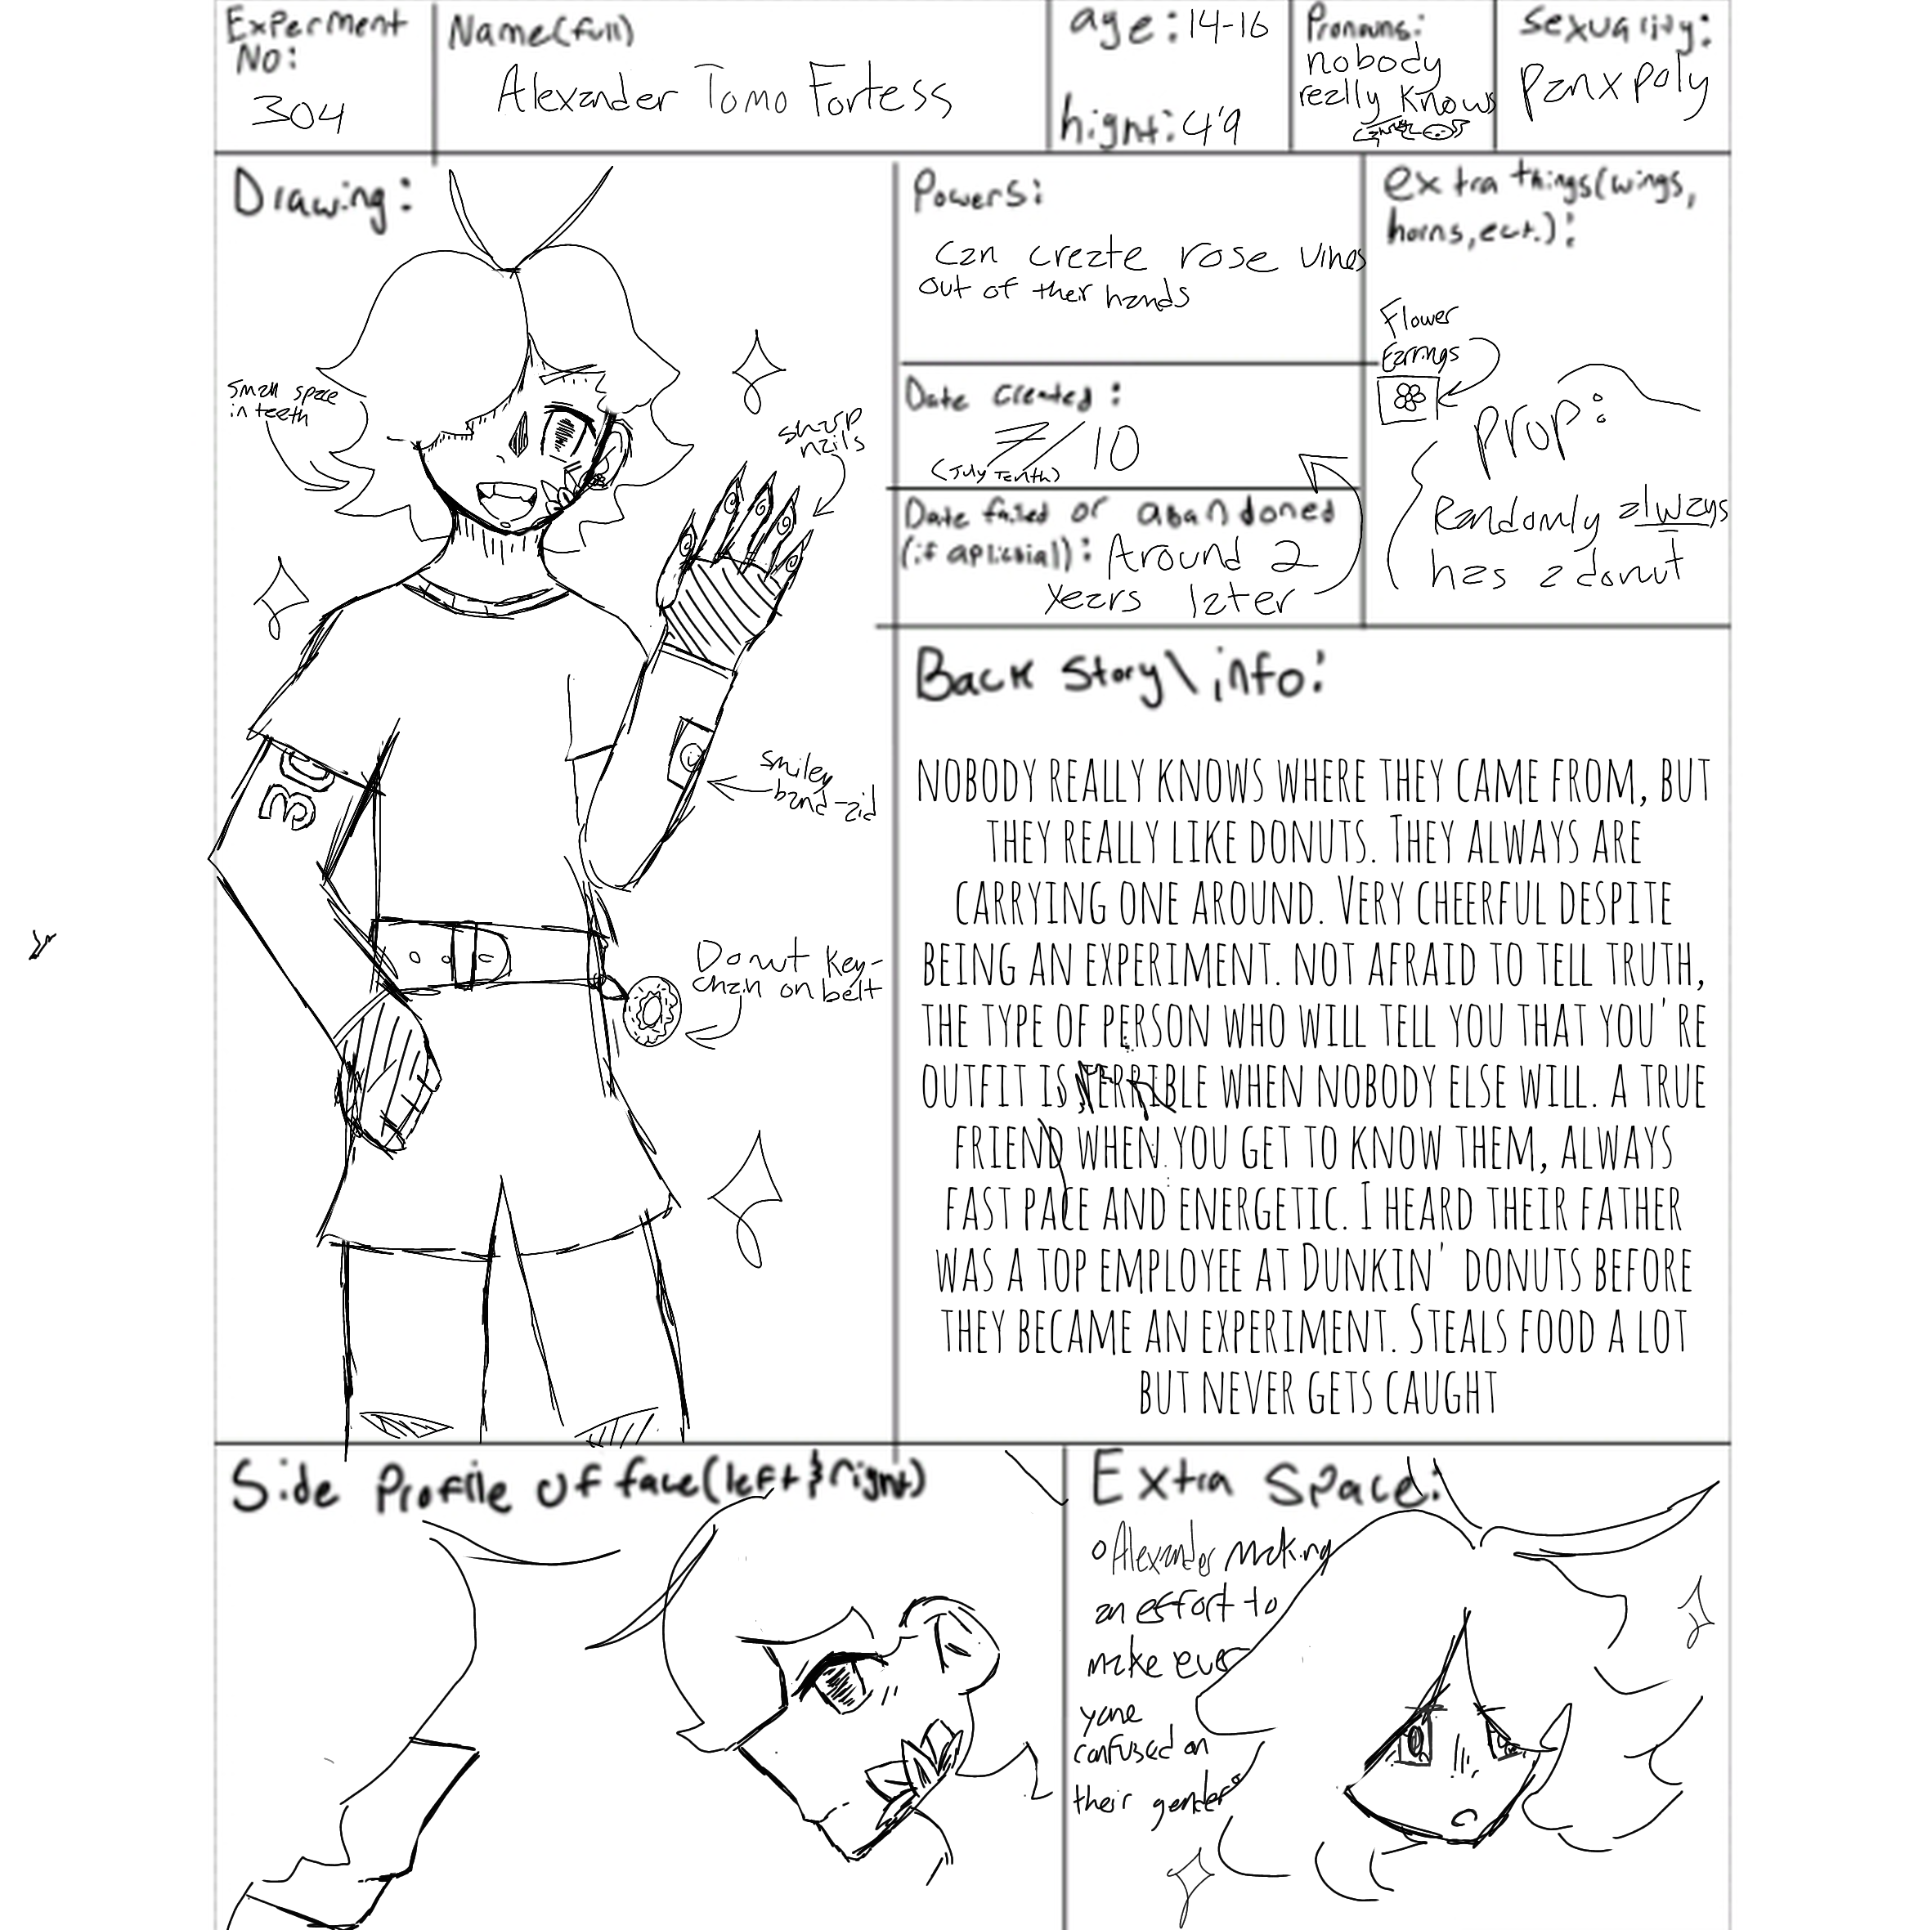 Experment
No:
304
Name(full)
Alexander Tomo Fortess
age: 14-16
hight: 4'9
Pronouns:
nobody
really knows
Sexuality:
Panxpoly
Drawing:
Small space
in teeth
sharp
nails
30
smiley
band-aid
Donut key-
chain on belt
Powers:
can create rose vines
out of their hands
extra things(wings,
horns, ect.):
Flower
Earrings
prop:
Randomly always
has a donut
Date Created:
7/10
(July Tenth)
Date failed or abandoned
(if aplicbial): Around 2
years later
Back Story\info:
NOBODY REALLY KNOWS WHERE THEY CAME FROM, BUT
THEY REALLY LIKE DONUTS. THEY ALWAYS ARE
CARRYING ONE AROUND. VERY CHEERFUL DESPITE
BEING AN EXPERIMENT. NOT AFRAID TO TELL TRUTH,
THE TYPE OF PERSON WHO WILL TELL YOU THAT YOU'RE
OUTFIT IS TERRIBLE WHEN NOBODY ELSE WILL. A TRUE
FRIEND WHEN YOU GET TO KNOW THEM, ALWAYS
FAST PACE AND ENERGETIC. I HEARD THEIR FATHER
WAS A TOP EMPLOYEE AT DUNKIN' DONUTS BEFORE
THEY BECAME AN EXPERIMENT. STEALS FOOD A LOT
BUT NEVER GETS CAUGHT
Side Profile of face(left & right)
Extra Space:
Alexander making
an effort to
make ever
yone
confused on
their gender